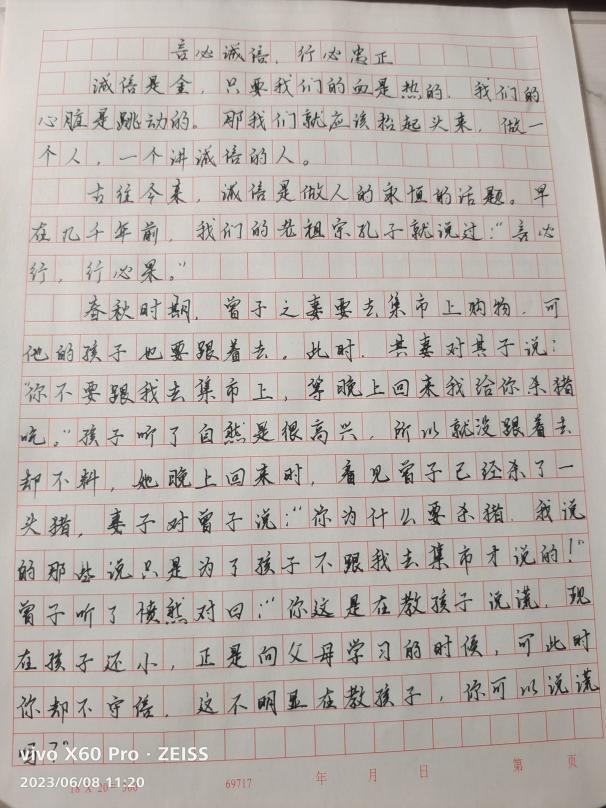 言必诚信,行必忠正
诚信是金,只要我们的血是热的,我们的
心脏是跳动的。那我们就应该抬起头来,做一
个人,一个讲诚信的人。
古往今来,诚信是做人的永恒的话题。早
在几千年前,我们的老祖宗孔子就说过:“言必
行,行必果。”
春秋时期,曾子之妻要去集市上购物,可
他的孩子也要跟着去。此时,其妻对其子说:
“你不要跟我去集市上,等晚上回来我给你杀猪
吃。”孩子听了自然是很高兴,所以就没跟着去
却不料,她晚上回来时,看见曾子已经杀了一
头猪,妻子对曾子说:“你为什么要杀猪,我说
的那些说只是为了孩子不跟我去集市才说的!”
曾子听了愤然对曰:“你这是在教孩子说谎,现
在孩子还小,正是向父母学习的时候,可此时
你却不守信,这不明显在教孩子,你可以说谎
吗?”
vivo X60 Pro · ZEISS
2023/06/08 11:20
18×20=360 69717 年 月 日 第 页